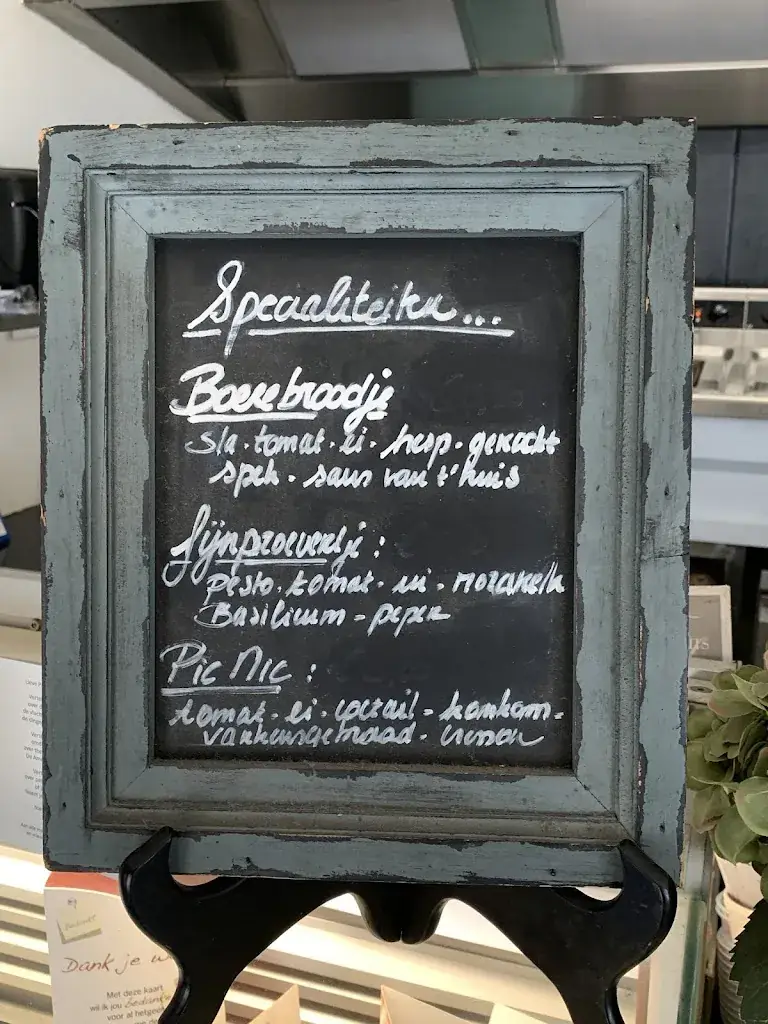 Specialiteiten...
Boerebroodje
sla. tomat. ei. hesp. gekookt
spek. saus van t'huis
Fijnproevertje:
pesto. tomat. ui. mozarella
Basilicum - peper
Pic Nic:
tomat. ei. coctail - komkom-
varkensgebraad. cresson
Dank je w
Met deze kaart
wil ik jou bedan
voor al hetgee